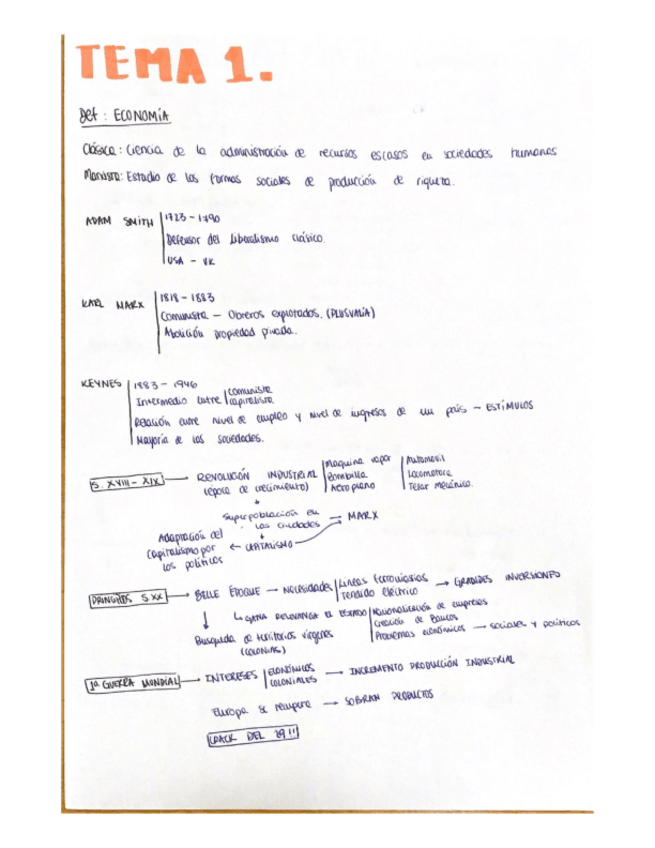 TEMA 1.
Def : ECONOMÍA
Clásica : Ciencia de la administración de recursos escasos en sociedades humanas
Marxista : Estudio de las formas sociales de producción de riqueza.
ADAM SMITH 1723 - 1790
Defensor del liberalismo clásico.
USA - UK
KARL MARX 1818 - 1883
Comunista - Obreros explotados. (PLUSVALÍA)
Abolición propiedad privada.
KEYNES 1883 - 1946
Intermedio entre comunista
capitalista
Relación entre nivel de empleo y nivel de ingresos de un país - ESTÍMULOS
Mayoría de las sociedades.
S. XVIII - XIX → REVOLUCIÓN INDUSTRIAL (época de crecimiento)
Maquina vapor
Bombilla
Aeroplano
Automovil
Locomotora
Telar mecánico.
Superpoblación en las ciudades → MARX
Adaptación del capitalismo por los políticos ← CAPITALISMO
PRINCIPIOS S.XX → BELLE ÉPOQUE → NECESIDADES Lineas ferroviarias → GRANDES INVERSIONES
Tendido eléctrico
↳ GANA RELEVANCIA EL ESTADO Nacionalización de empresas
Creación de Bancos
Problemas económicos → sociales y políticos
Busqueda de territorios vírgenes
(COLONIAS)
1ª GUERRA MUNDIAL → INTERESES ECONÓMICOS → INCREMENTO PRODUCCIÓN INDUSTRIAL
COLONIALES
Europa se recupera → SOBRAN PRODUCTOS
CRACK DEL 29!!